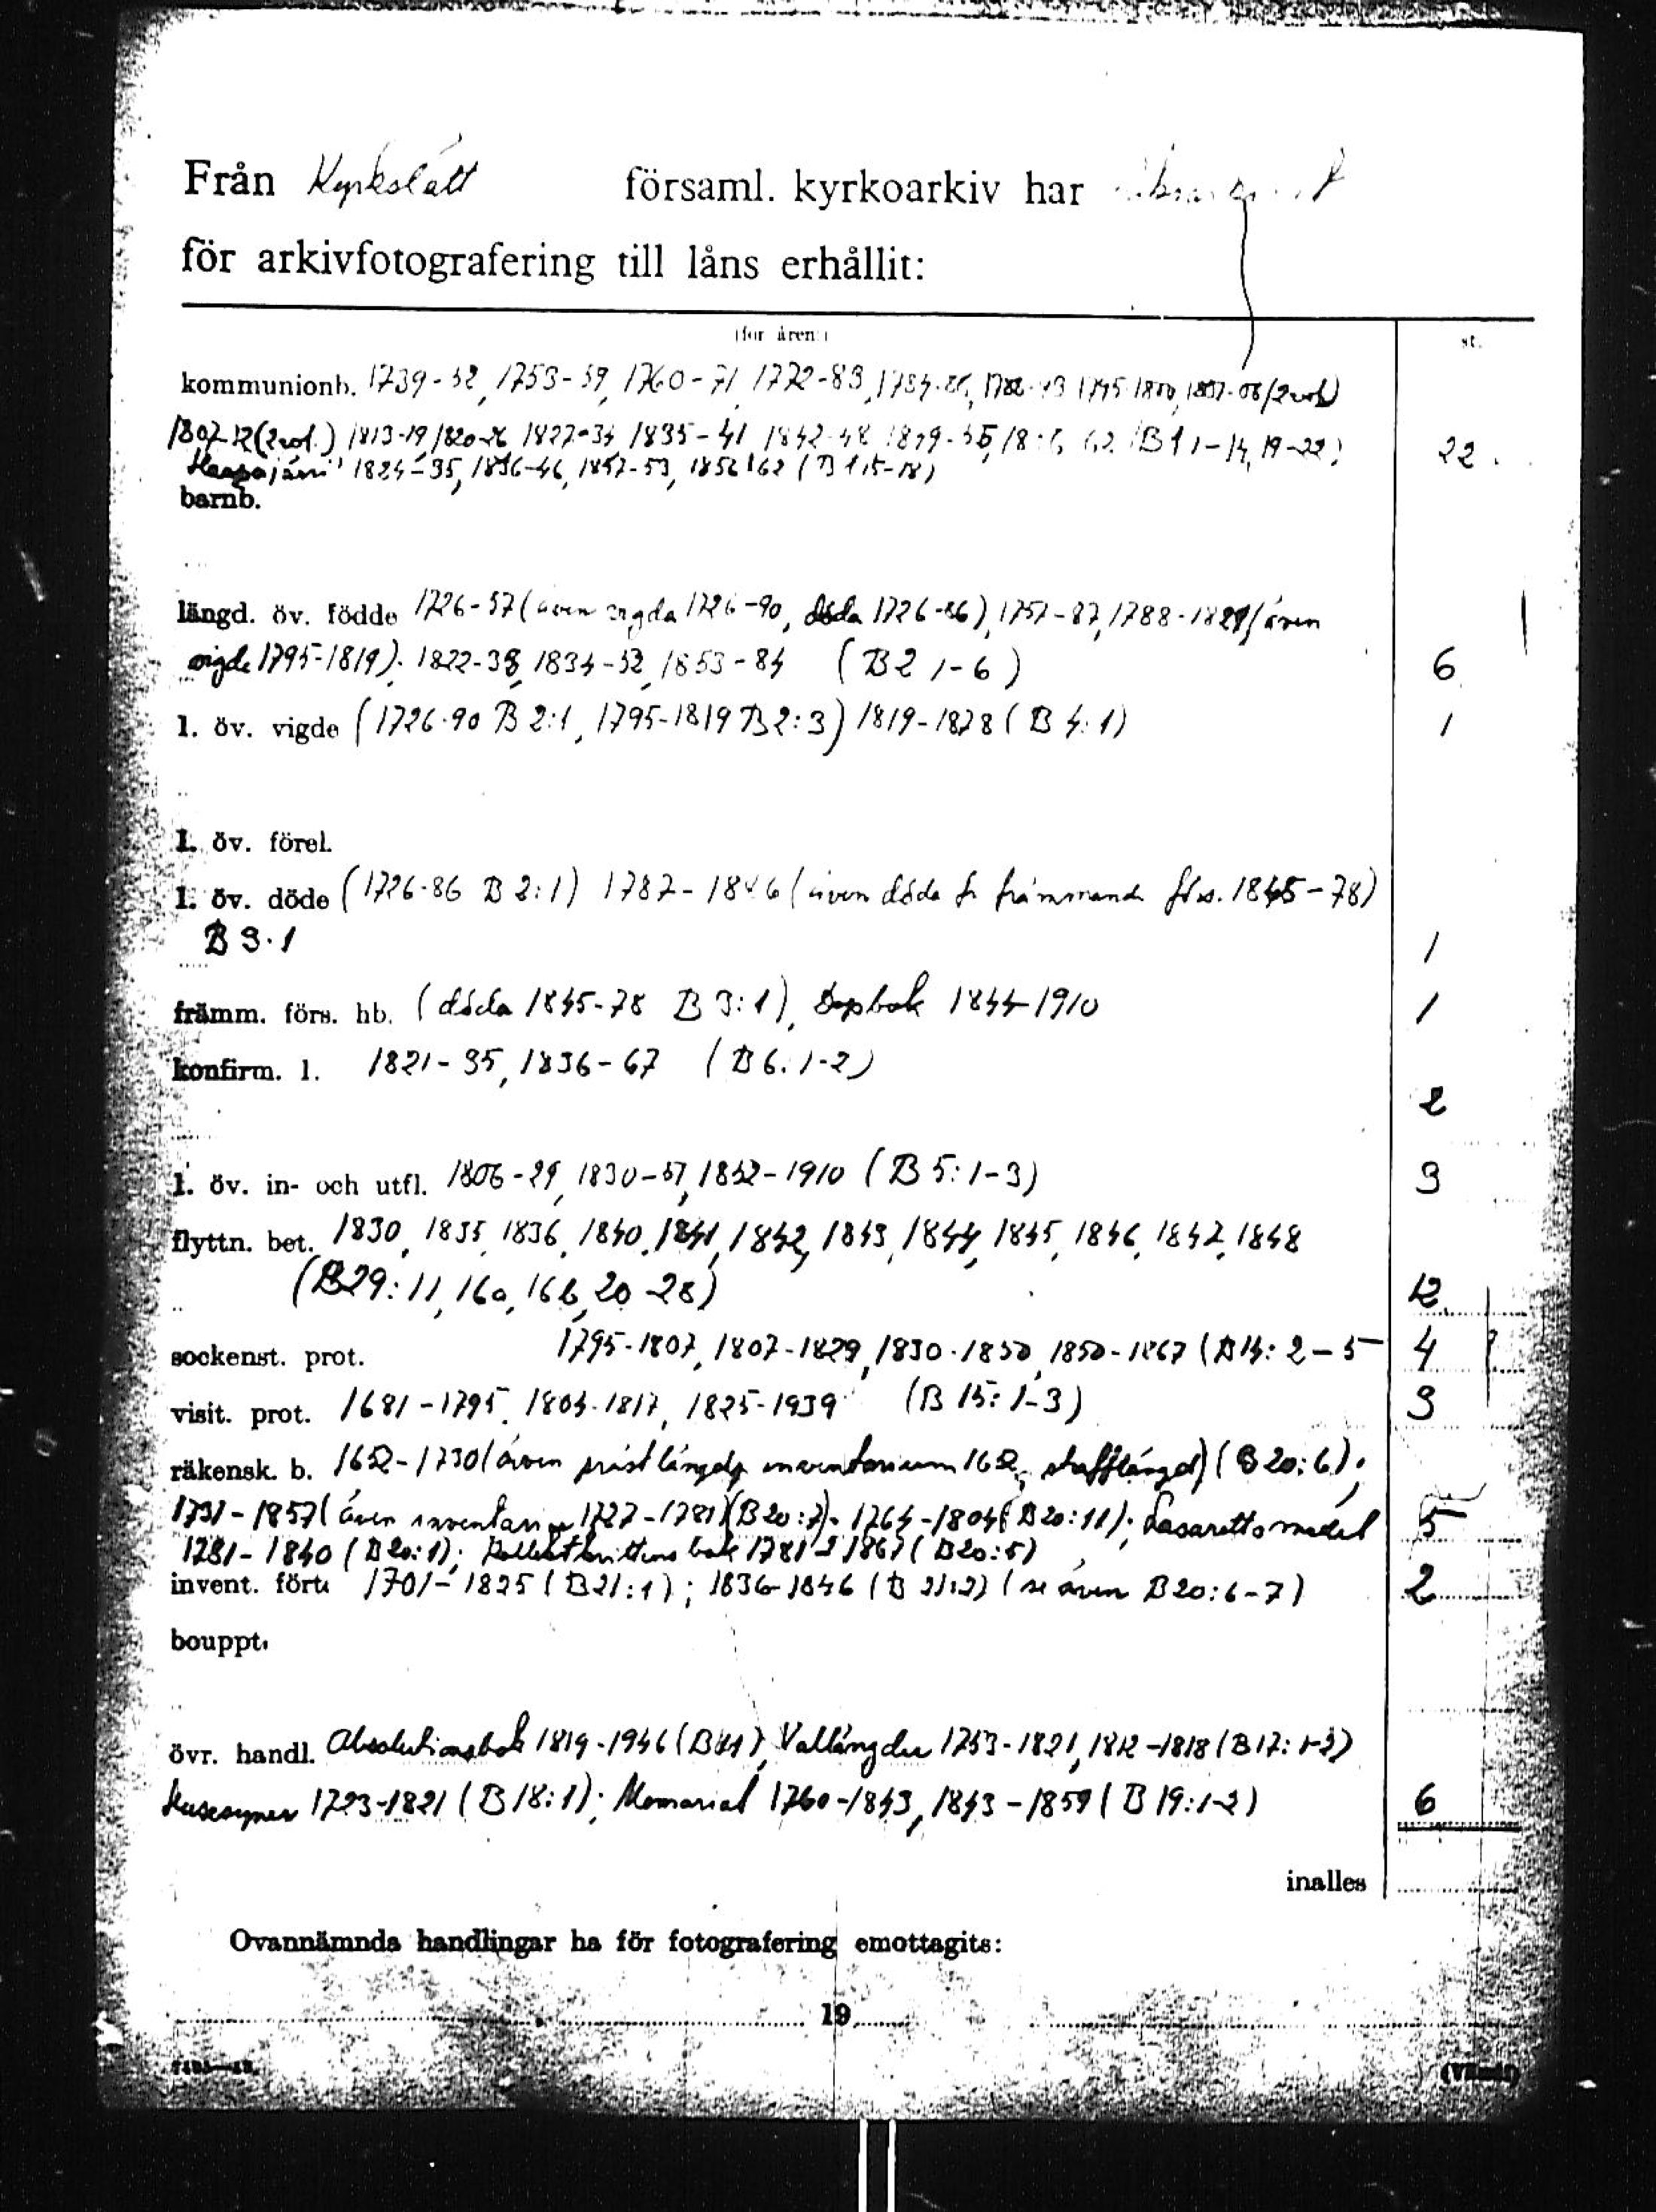 Från Kyrkslätt församl. kyrkoarkiv har
för arkivfotografering till låns erhållit:
(för åren:) st.
kommunionb. 1739-52, 1753-59, 1760-71, 1772-83,
1807-12 (2 vol.) 1813-19, 1820-26 1827-34 1835-41 1842-48 (B 1 1-14, 19-22); 22
1824-35, 1836-46, 1847-53, 1856-62 (B 1 15-18)
barnb.
längd. öv. födde 1726-57 (även vigda 1726-90, döda 1726-86), 1757-87, 1788-1821 (även
vigde 1795-1819), 1822-33, 1834-52, 1853-84 (B2 1-6) 6
l. öv. vigde (1726-90 B 2:1, 1795-1819 B 2:3) 1819-1878 (B 4:1) 1
l. öv. förel.
l. öv. döde (1726-86 B 2:1) 1787-1846 (även döda fr främmande förs. 1845-78)
B 3:1 1
främm. förs. hb. (döda 1845-78 B 3:1), Dopbok 1844-1910 1
konfirm. l. 1821-35, 1836-67 (B 6:1-2)
2
l. öv. in- och utfl. 1806-29, 1830-51, 1852-1910 (B 5:1-3) 3
flyttn. bet. 1830, 1835, 1836, 1840, 1841, 1842, 1843, 1844, 1845, 1846, 1847, 1848
(B29: 11, 16a, 16b, 20-28) 12
sockenst. prot. 1795-1807, 1807-1829, 1830-1850, 1850-1867 (B14: 2-5 4
visit. prot. 1681-1795, 1804-1817, 1825-1939 (B 15: 1-3) 3
räkensk. b. 1652-1730 (även inventarium (B 20:6);
1731-1857 (även inventarium 1727-1781) (B20:7). 1764-1804 (B20:11); Lasarettsmedel 5
1781-1840 (B20:1); 1781-1867 (B20:5)
invent. fört. 1701-1825 (B21:1); 1836-1846 (B 21:2) (se även B20:6-7) 2
bouppt.
övr. handl. Absolutionsbok 1819-1946, Vallängder 1753-1821, 1812-1818 (B17: 1-2)
Husesyner 1723-1821 (B 18:1); Memorial 1760-1843, 1843-1859 (B 19:1-2) 6
inalles
Ovannämnda handlingar ha för fotografering emottagits:
19